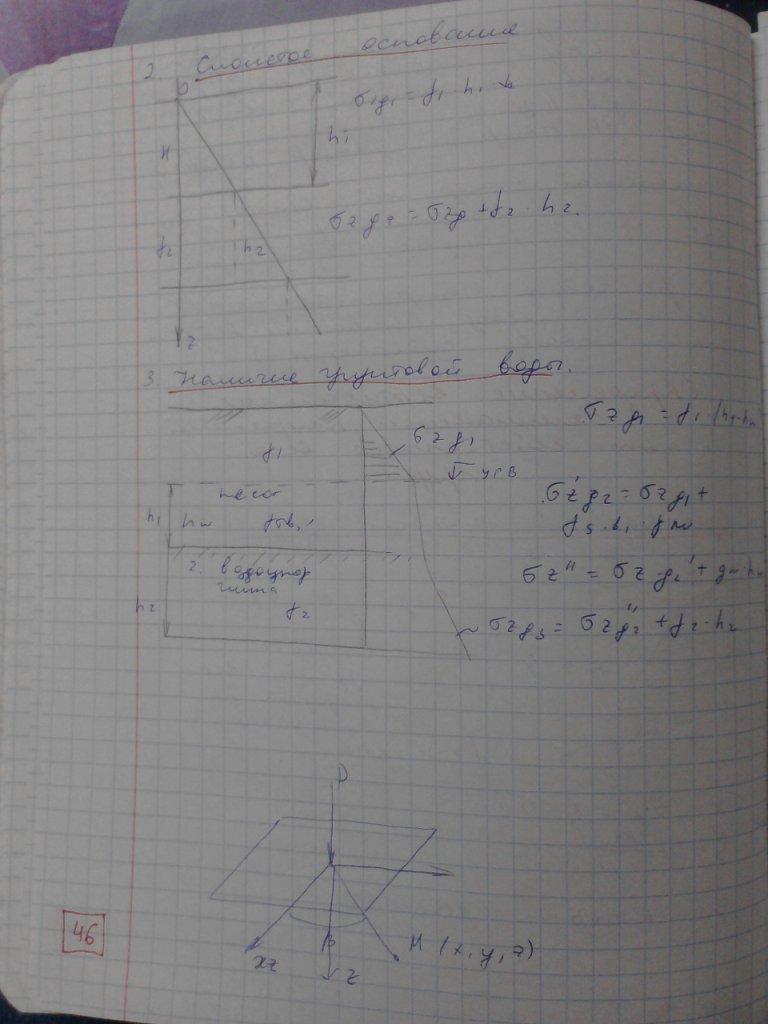 2. Слоистое основание
0
σzg₁ = γ₁ · h₁
H
h₁
σzg₂ = σzg + γ₂ · h₂.
γ₂
h₂
z
3. Наличие грунтовой воды.
σzg₁ = γ₁ (h₁-hw
σzg₁
γ₁
УГВ
песок
σ'zg₂ = σzg₁ +
h₁
hw
γsb₁
2. водоупор
глина
σz'' = σzg₂' + gw·hw
h₂
γ₂
σzg₃ = σzg₂'' + γ₂ · h₂
P
β
M (x, y, z)
xz
z
46